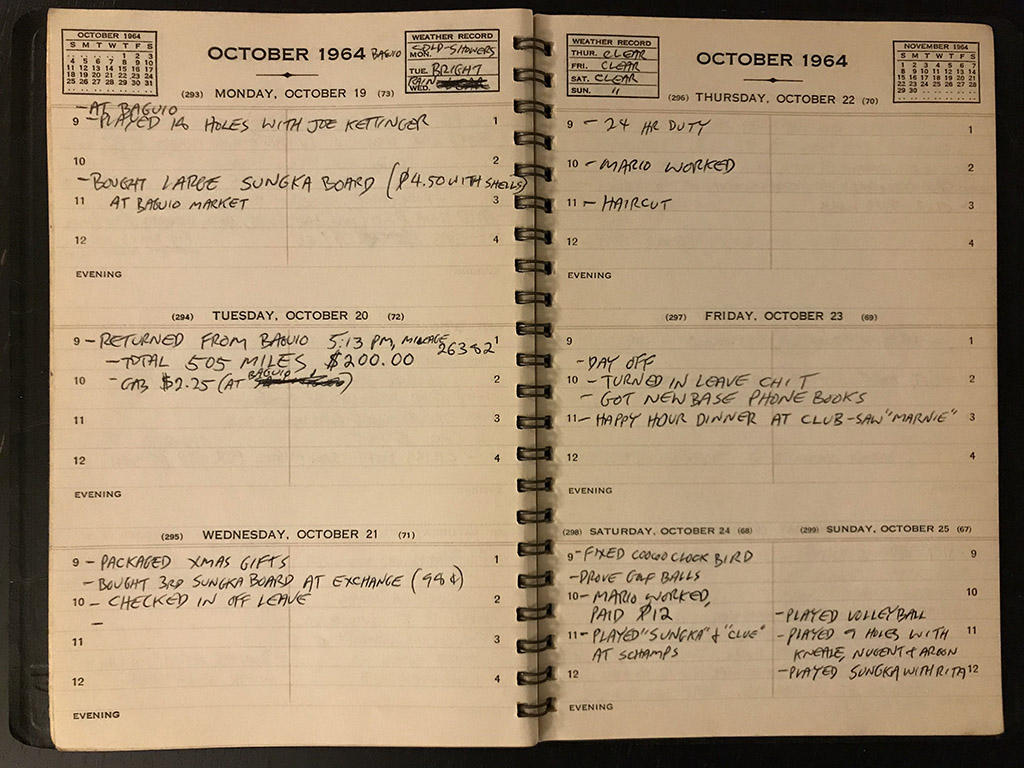 OCTOBER 1964
S M T W T F S
1 2 3
4 5 6 7 8 9 10
11 12 13 14 15 16 17
18 19 20 21 22 23 24
25 26 27 28 29 30 31
OCTOBER 1964 BAGUIO
WEATHER RECORD
MON. COLD-SHOWERS
TUE. BRIGHT
WED. RAIN
(293) MONDAY, OCTOBER 19 (73)
- AT BAGUIO
9 - PLAYED 18 HOLES WITH JOE KETTINGER 1
10 2
- BOUGHT LARGE SUNGKA BOARD (₱4.50 WITH SHELLS)
11 AT BAGUIO MARKET 3
12 4
EVENING
(294) TUESDAY, OCTOBER 20 (72)
9 - RETURNED FROM BAGUIO 5:13 PM, MILEAGE 26382 1
- TOTAL 505 MILES $200.00
10 - CAB $2.25 (AT BAGUIO) 2
11 3
12 4
EVENING
(295) WEDNESDAY, OCTOBER 21 (71)
9 - PACKAGED XMAS GIFTS 1
- BOUGHT 3RD SUNGKA BOARD AT EXCHANGE (98¢)
10 - CHECKED IN OFF LEAVE 2
-
11 3
12 4
EVENING
WEATHER RECORD
THUR. CLEAR
FRI. CLEAR
SAT. CLEAR
SUN. "
OCTOBER 1964
NOVEMBER 1964
S M T W T F S
1 2 3 4 5 6 7
8 9 10 11 12 13 14
15 16 17 18 19 20 21
22 23 24 25 26 27 28
29 30
(296) THURSDAY, OCTOBER 22 (70)
9 - 24 HR DUTY 1
10 - MARIO WORKED 2
11 - HAIRCUT 3
12 4
EVENING
(297) FRIDAY, OCTOBER 23 (69)
9 1
- DAY OFF
10 - TURNED IN LEAVE CHIT 2
- GOT NEW BASE PHONE BOOKS
11 - HAPPY HOUR DINNER AT CLUB - SAW "MARNIE" 3
12 4
EVENING
(298) SATURDAY, OCTOBER 24 (68)
9 - FIXED COOCOO CLOCK BIRD
- DROVE GOLF BALLS
10 - MARIO WORKED,
PAID ₱12
11 - PLAYED "SUNGKA" & "CLUE"
AT SCHAMPS
12
EVENING
(299) SUNDAY, OCTOBER 25 (67)
9
10
- PLAYED VOLLEYBALL
- PLAYED 9 HOLES WITH 11
KNEALE, NUGENT &
- PLAYED SUNGKA WITH RITA 12